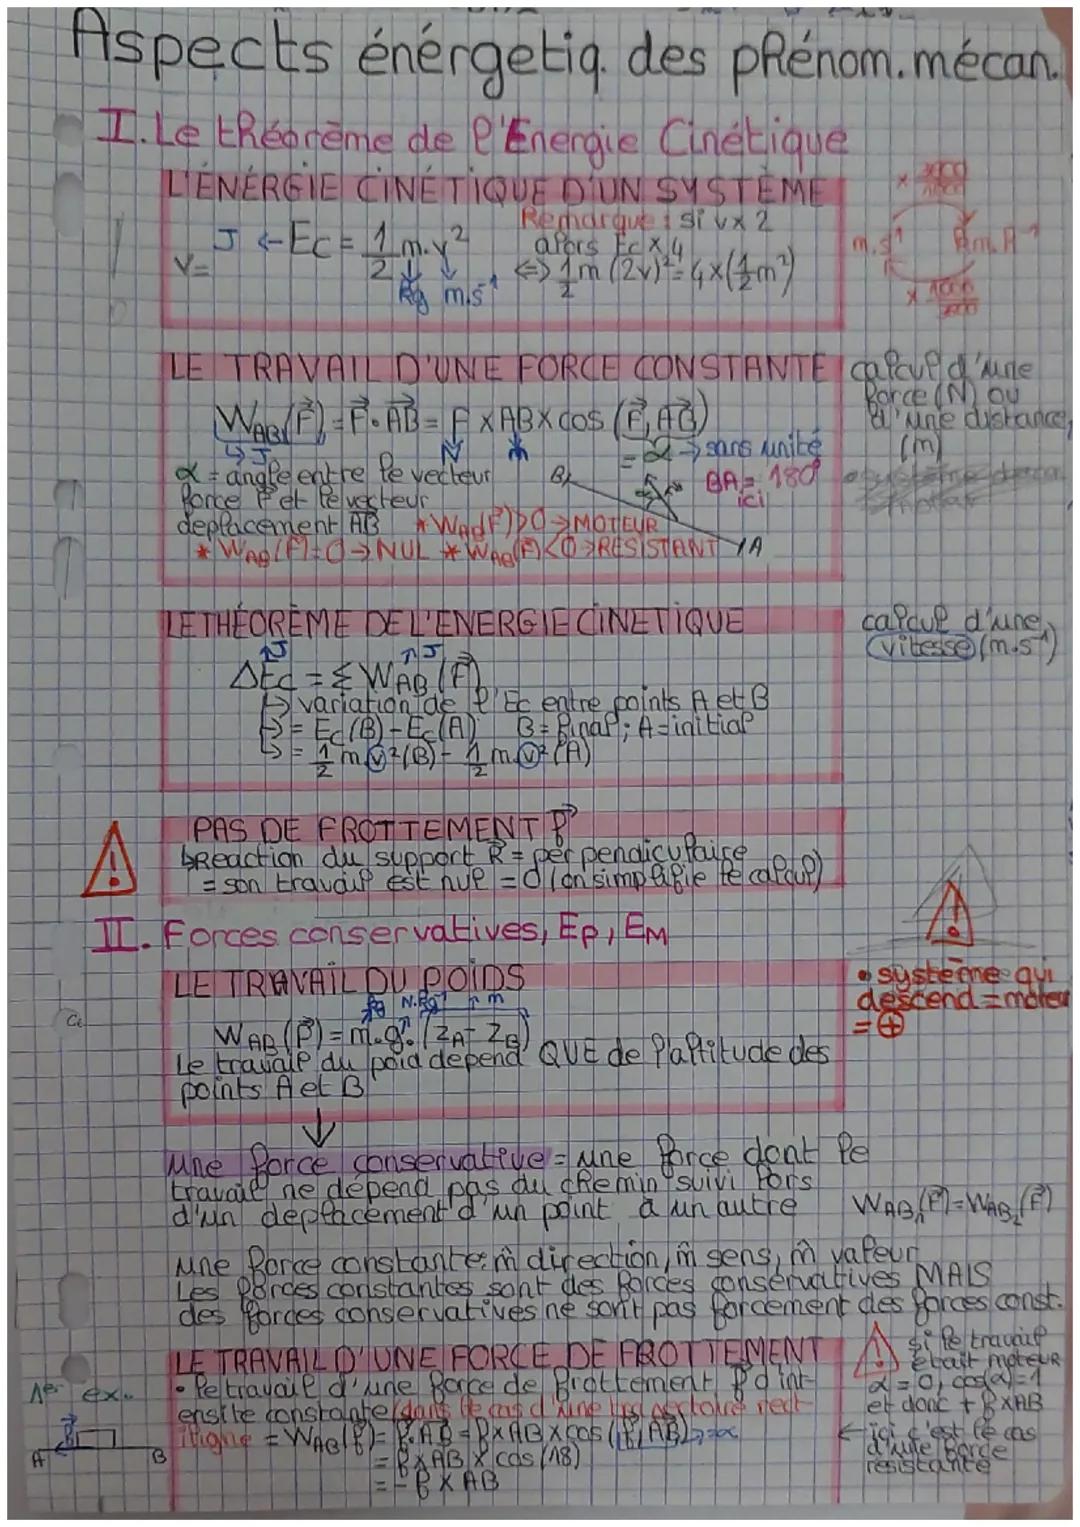 Aspects énérgetiq. des phénom. mécan.
I. Le théorème de l'Énergie Cinétique
L'ÉNÉRGIE CINÉTIQUE D'UN SYSTÈME
Remarque : si v x 2
alors Ec x 4
J ← Ec = 1/2 m.v²
V=
<=> 1/2 m (2v)² = 4 x (1/2 m²)
kg m.s⁻¹
m.s⁻¹ km.h⁻¹
LE TRAVAIL D'UNE FORCE CONSTANTE
calcul d'une
force (N) ou
d'une distance
(m)
W_AB(F) = F . AB = F x AB x cos (F, AB)
↳ J N m = α → sans unité
α = angle entre le vecteur
force F et le vecteur
deplacement AB
B A
BA = 180°
ici
* W_AB(F) > 0 → MOTEUR
* W_AB(F) = 0 → NUL * W_AB(F) < 0 → RESISTANT
LE THÉORÈME DE L'ENERGIE CINETIQUE
calcul d'une
vitesse (m.s⁻¹)
J J
ΔEc = Σ W_AB (F)
↳ variation de l'Ec entre points A et B
↳ = Ec(B) - Ec(A) B = final ; A = initial
↳ = 1/2 m v²(B) - 1/2 m v²(A)
PAS DE FROTTEMENT f
↳ Reaction du support R = perpendiculaire
= son travail est nul = 0 (on simplifie le calcul)
II. Forces conservatives, Ep, EM
LE TRAVAIL DU POIDS
kg N.kg⁻¹ m
W_AB (P) = m.g.(zA - zB)
Le travail du poid depend QUE de l'altitude des
points A et B
• système qui
descend = moteur
= ⊕
une force conservative = une force dont le
travail ne dépend pas du chemin suivi lors
d'un deplacement d'un point à un autre
W_AB₁(P) = W_AB₂(P)
une force constante: m̂ direction, m̂ sens, m̂ valeur
Les forces constantes sont des forces conservatives MAIS
des forces conservatives ne sont pas forcement des forces const.
LE TRAVAIL D'UNE FORCE DE FROTTEMENT
• le travail d'une force de frottement f d'int-
ensite constante (dans le cas d'une trajectoire rect-
iligne = W_AB(f) = f . AB = f x AB x cos (f, AB) → α
= f x AB x cos (18)
= - f x AB
1er ex..
A B
si le travail
était moteur
α = 0, cos(α) = 1
et donc + f x AB
← ici c'est le cas
d'une force
résistante